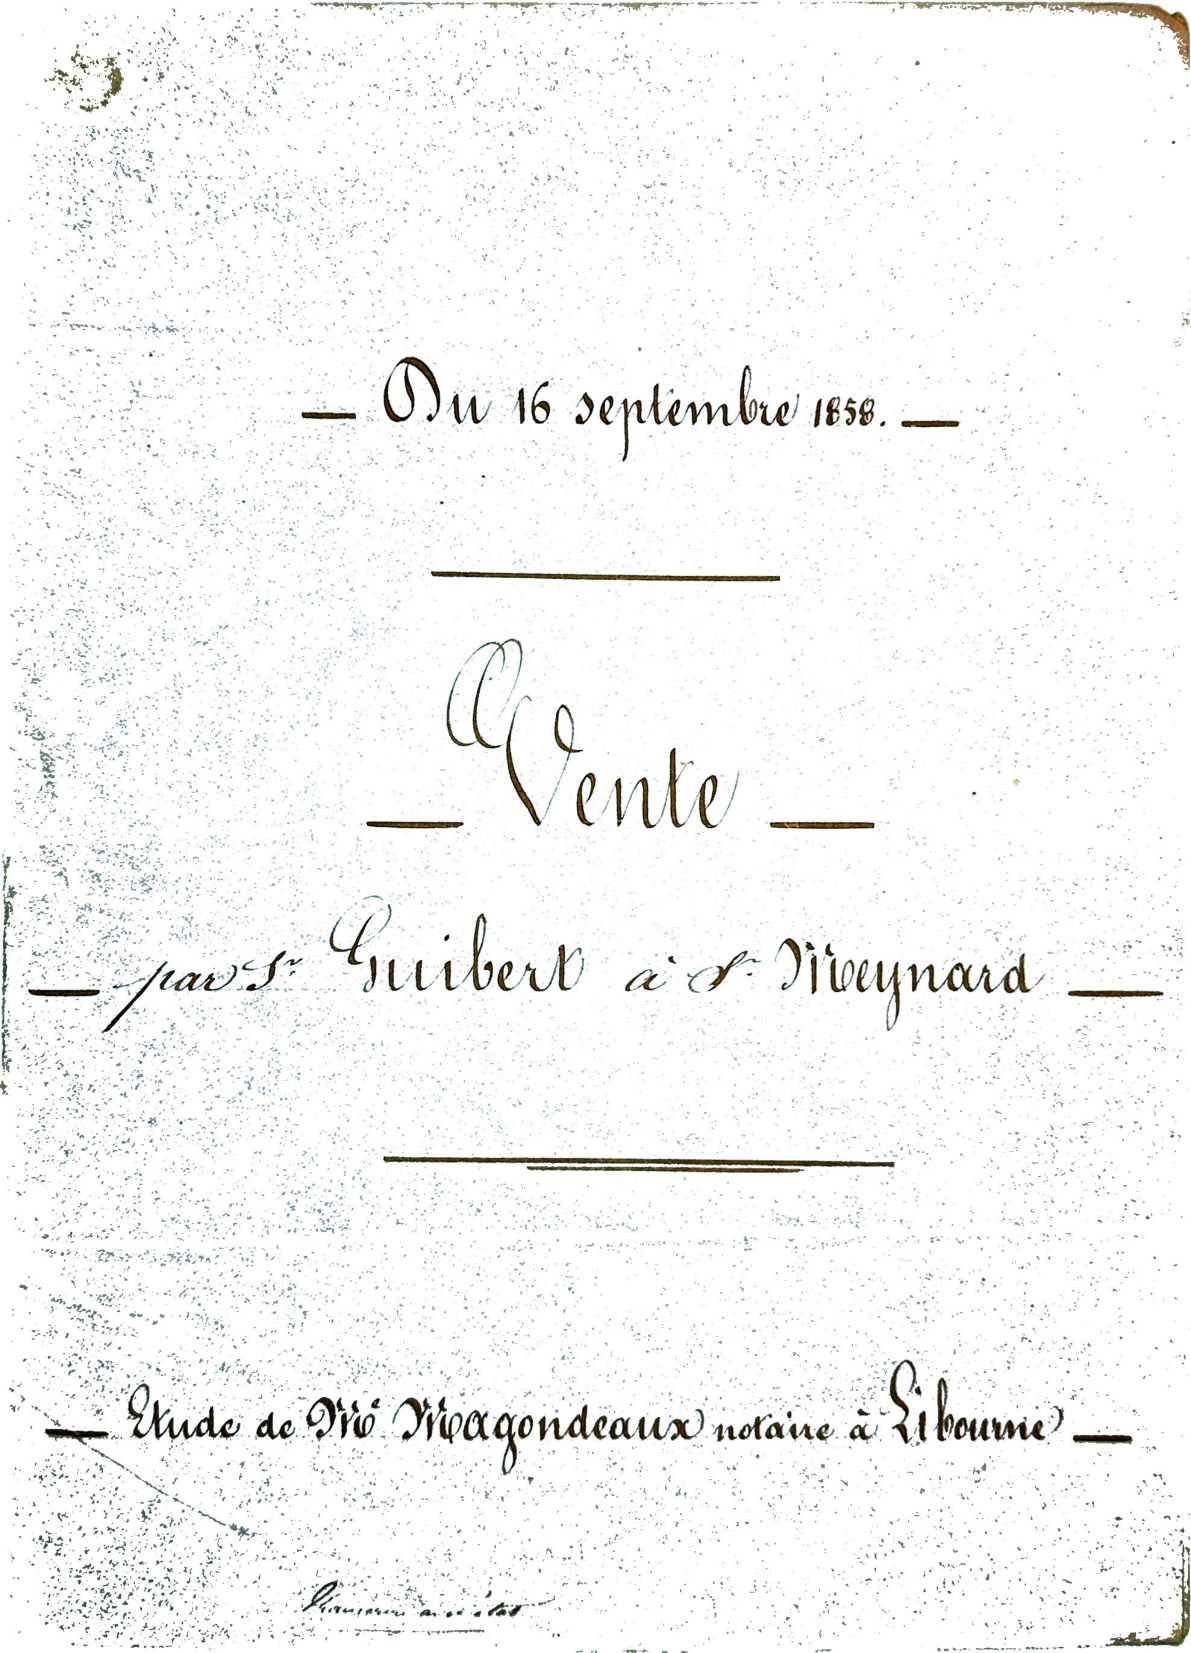 — Du 16 septembre 1858. —
Vente
— par Sr Guibert à Sr Meynard —
— Etude de Me Magondeaux notaire à Libourne —